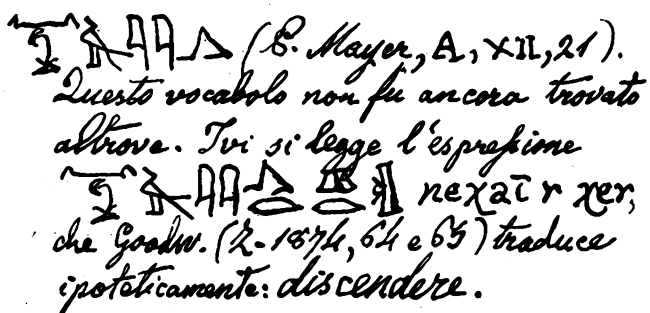 (P. Mayer, A, XII, 21).
Questo vocabolo non fu ancora trovato
altrove. Ivi si legge l'espreſsione
neχaī r χer,
che Goodw. (Z-1874, 64 e 65) traduce
ipoteticamente: discendere.